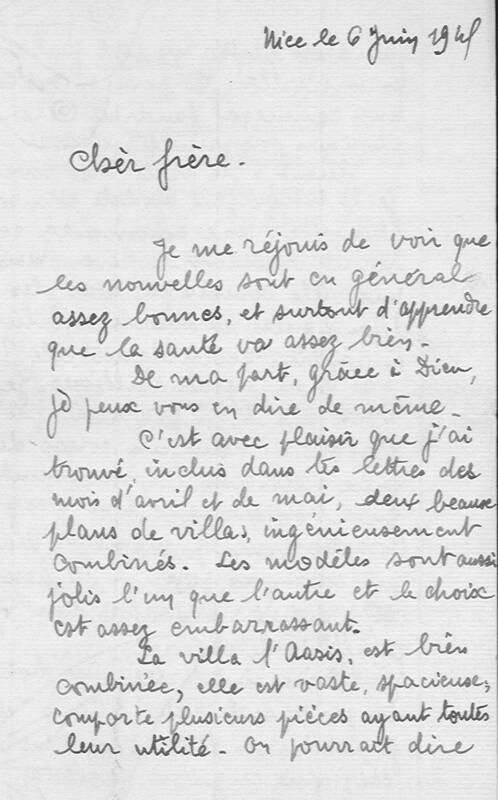 Nice le 6 Juin 1945
Chèr frère.
Je me réjouis de voir que
les nouvelles sont en général
assez bonnes, et surtout d'apprendre
que la santé va assez bien.
De ma part, grâce à Dieu,
je peux vous en dire de même.
C'est avec plaisir que j'ai
trouvé, inclus dans tes lettres des
mois d'avril et de mai, deux beaux
plans de villas, ingénieusement
combinés. Les modèles sont aussi
jolis l'un que l'autre et le choix
est assez embarrassant.
La villa l'Oasis, est bien
combinée, elle est vaste, spacieuse,
comporte plusieurs pièces ayant toutes
leur utilité - On pourrait dire